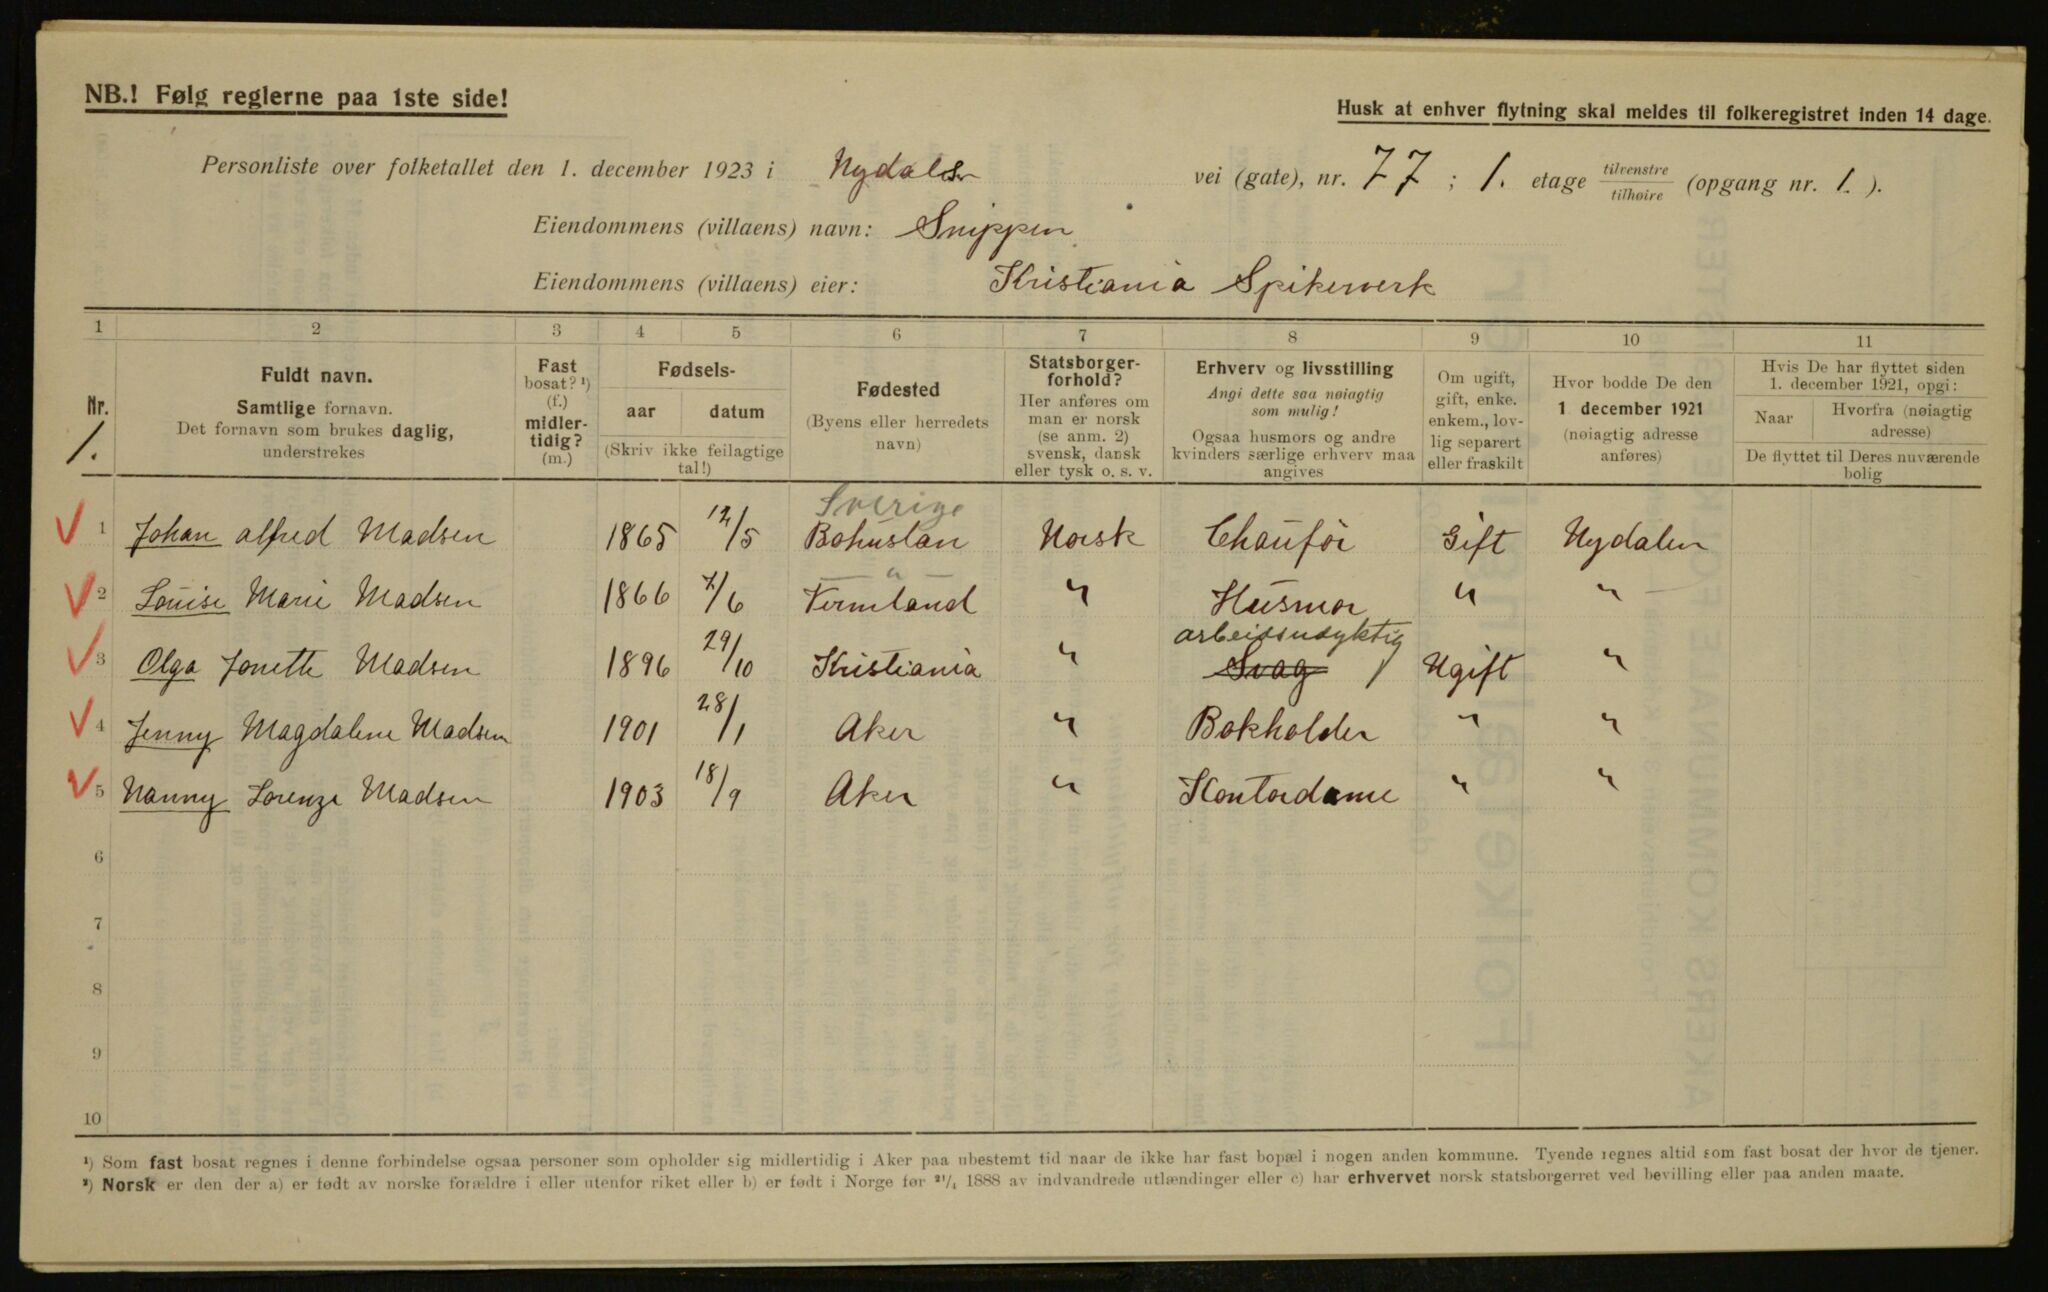 NB.! Følg reglerne paa 1ste side!
Husk at enhver flytning skal meldes til folkeregistret inden 14 dage.
Personliste over folketallet den 1. december 1923 i Nydalsv vei (gate), nr. 77 ; 1. etage tilvenstre tilhøire (opgang nr. 1. ).
Eiendommens (villaens) navn: Snippen
Eiendommens (villaens) eier: Kristiania Spikerverk
1 2 3 4 5 6 7 8 9 10 11
Nr. 1.
Fuldt navn.
Samtlige fornavn.
Det fornavn som brukes daglig,
understrekes
Fast
bosat? ¹)
(f.)
midler-
tidig?
(m.)
Fødsels-
aar datum
(Skriv ikke feilagtige
tal!)
Fødested
(Byens eller herredets
navn)
Statsborger-
forhold?
Her anføres om
man er norsk
(se anm. 2)
svensk, dansk
eller tysk o. s. v.
Erhverv og livsstilling
Angi dette saa nøiagtig
som mulig!
Ogsaa husmors og andre
kvinders særlige erhverv maa
angives
Om ugift,
gift, enke.
enkem., lov-
lig separert
eller fraskilt
Hvor bodde De den
1 december 1921
(nøiagtig adresse
anføres)
Hvis De har flyttet siden
1. december 1921, opgi:
Naar Hvorfra (nøiagtig
adresse)
De flyttet til Deres nuværende
bolig
Sverige
1 Johan alfred Madsen 1865 12/5 Bohuslan Norsk Chauför Gift Nydalen
"
2 Louise Marie Madsen 1866 7/6 Vermland " Husmor " "
arbeidsudyktig
3 Olga Jonette Madsen 1896 29/10 Kristiania " Svag Ugift "
4 Jenny Magdalene Madsen 1901 28/1 Aker " Bokholder " "
5 Nanny Lorenze Madsen 1903 18/9 Aker " Kontordame " "
6
7
8
9
10
¹) Som fast bosat regnes i denne forbindelse ogsaa personer som opholder sig midlertidig i Aker paa ubestemt tid naar de ikke har fast bopæl i nogen anden kommune. Tyende regnes altid som fast bosat der hvor de tjener.
²) Norsk er den der a) er født av norske forældre i eller utenfor riket eller b) er født i Norge før ²¹/₄ 1888 av indvandrede utlændinger eller c) har erhvervet norsk statsborgerret ved bevilling eller paa anden maate.